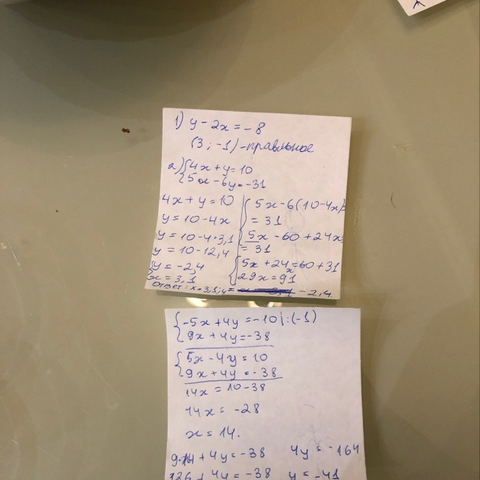 1) y - 2x = -8
(3; -1) - правильное
2) { 4x + y = 10
{ 5x - 6y = -31
4x + y = 10
y = 10 - 4x
y = 10 - 4·3,1
y = 10 - 12,4
y = -2,4
x = 3,1
{ 5x - 6(10 - 4x)
= 31
{ 5x - 60 + 24x
= 31
{ 5x + 24x = 60 + 31
29x = 91
ответ: x = 3,1; y = -2,4
{ -5x + 4y = -10 | : (-1)
{ 9x + 4y = -38
{ 5x - 4y = 10
{ 9x + 4y = -38
14x = 10 - 38
14x = -28
x = 14.
9·14 + 4y = -38
126 + 4y = -38
4y = -164
y = -41